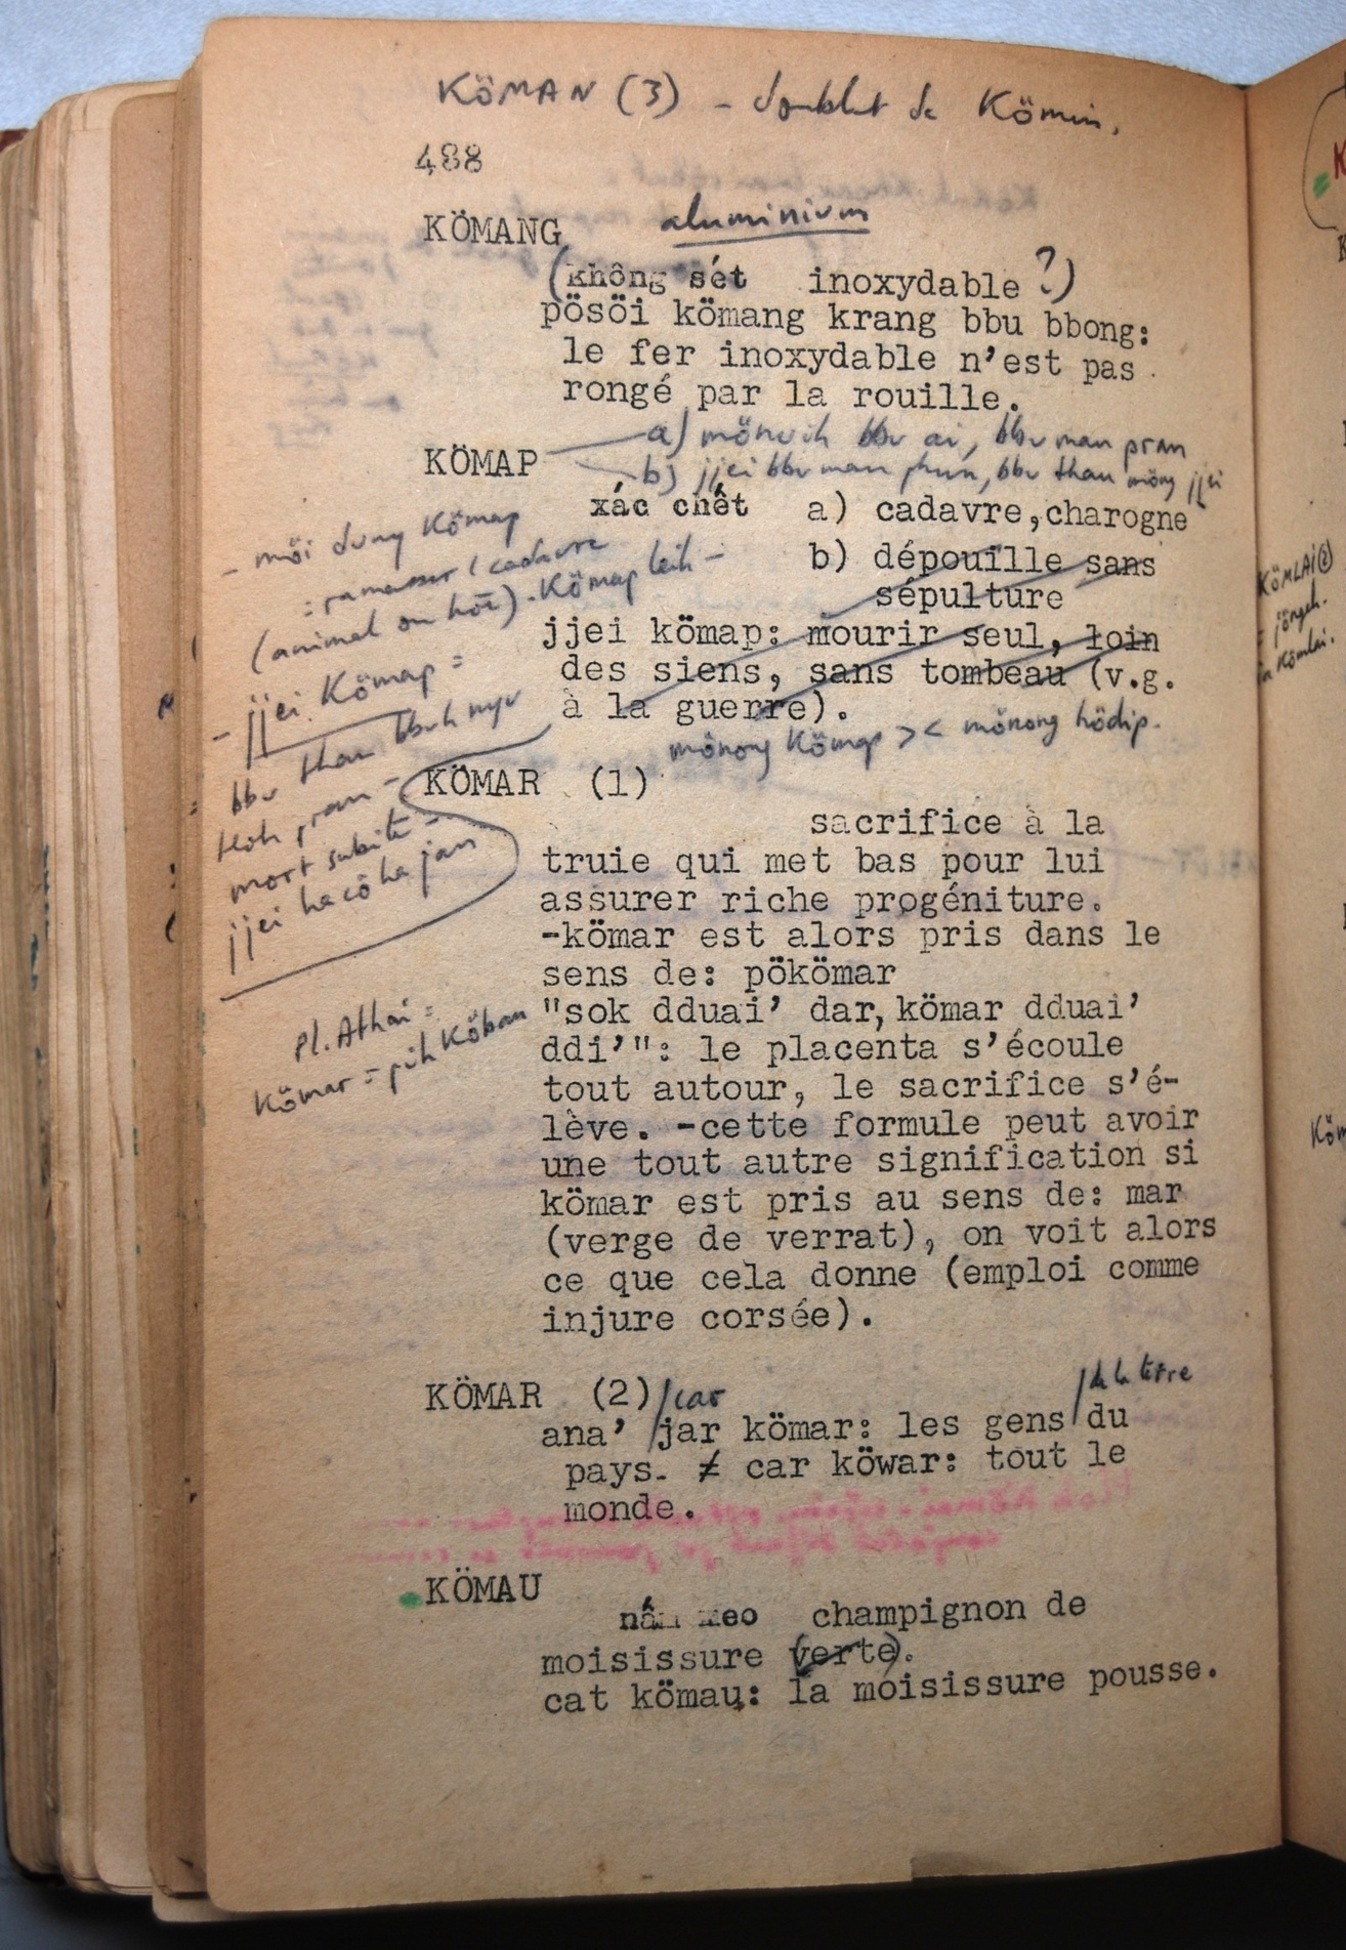 KÖMAN (3) - doublet de Kömin.
488
KÖMANG aluminium
(không sét inoxydable ?)
pösöi kömang krang bbu bbong:
le fer inoxydable n'est pas
rongé par la rouille.
a) mönuih bbu ai, bbu man pran
KÖMAP
b) jjei bbu man phun, bbu than möng jjei
xác chết a) cadavre, charogne
b) dépouille sans
sépulture
jjei kömap: mourir seul, loin
des siens, sans tombeau (v.g.
à la guerre).
mönong Kömap >< mönong hödip.
- möi dung Kömap
= ramasser 1 cadavre
(animal ou hoï). Kömap leih -
- jjei Kömap =
bbu than bbuh nyu
Hoh pran -
mort subite -
jjei ha cô ha jan
KÖMAR (1)
sacrifice à la
truie qui met bas pour lui
assurer riche progéniture.
-kömar est alors pris dans le
sens de: pökömar
"sok dduai' dar, kömar dduai'
ddi'": le placenta s'écoule
tout autour, le sacrifice s'é-
lève. -cette formule peut avoir
une tout autre signification si
kömar est pris au sens de: mar
(verge de verrat), on voit alors
ce que cela donne (emploi comme
injure corsée).
Pl. Athai =
Kömar = pih Köban
KÖMAR (2) /car /de la terre
ana' /jar kömar: les gens / du
pays. ≠ car köwar: tout le
monde.
KÖMAU
nấm meo champignon de
moisissure (verte).
cat kömau: la moisissure pousse.
KÖMLAI (2)
= jöngeh.
Köm